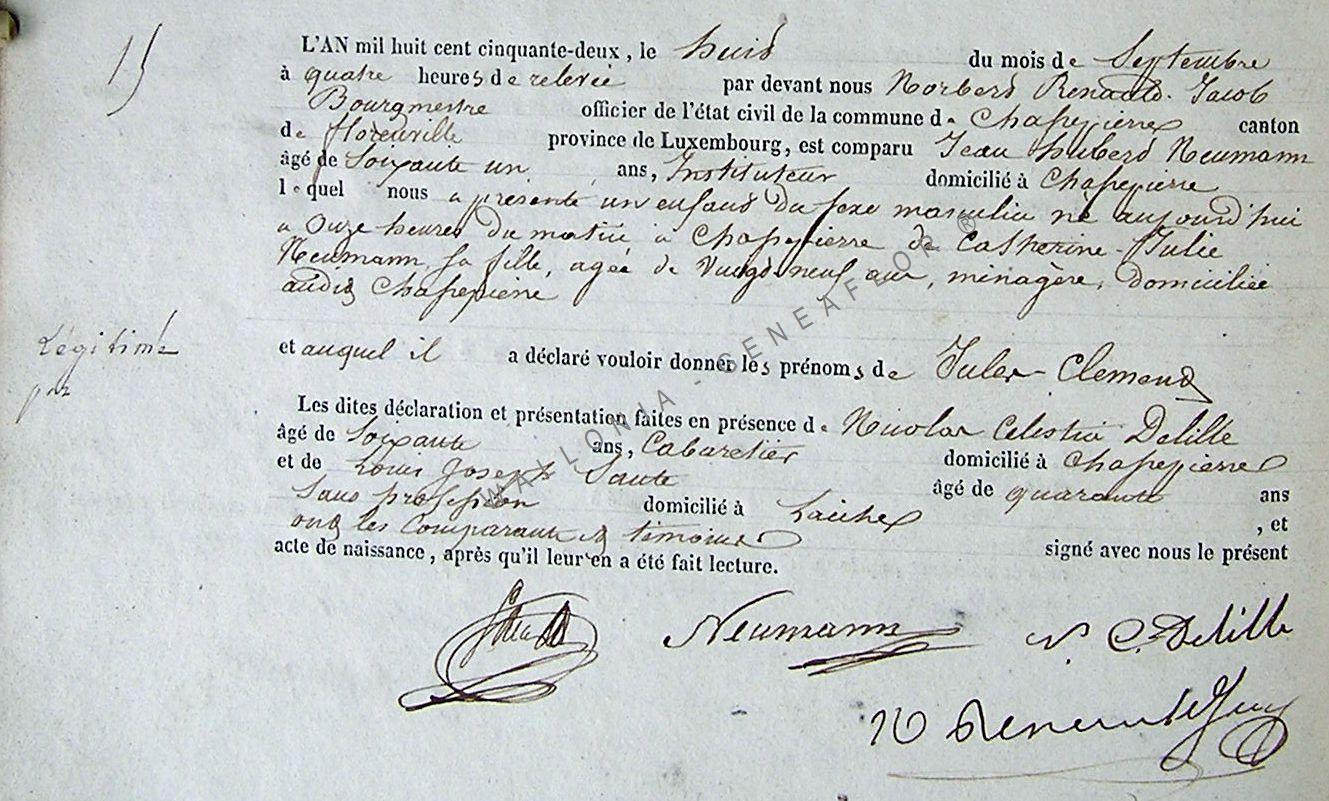 15
L'AN mil huit cent cinquante-deux, le huit du mois de Septembre
à quatre heures de relevée par devant nous Norbert Renauld. Jacob
Bourgmestre officier de l'état civil de la commune de Chassepierre canton
de florenville province de Luxembourg, est comparu Jean hubert Neumann
âgé de Soixante un ans, Instituteur domicilié à Chassepierre
lequel nous a présenté un enfant du sexe masculin né aujourd'hui
a onze heures du matin a Chassepierre de Catherine-Julie
Neumann sa fille, agée de vingt neuf ans, ménagère, domiciliée
audit Chassepierre
Légitimé
par
et auquel il a déclaré vouloir donner les prénoms de Jules-Clement
Les dites déclaration et présentation faites en présence de Nicolas Celestin Delille
âgé de Soixante ans, Cabaretier domicilié à Chassepierre
et de Louis Joseph âgé de quarante ans
sans profession domicilié à Laiche , et
ont les comparant et témoins signé avec nous le présent
acte de naissance, après qu'il leur en a été fait lecture.
Neumann N. C. Delille
WALLONIA GENEAFLOR ®